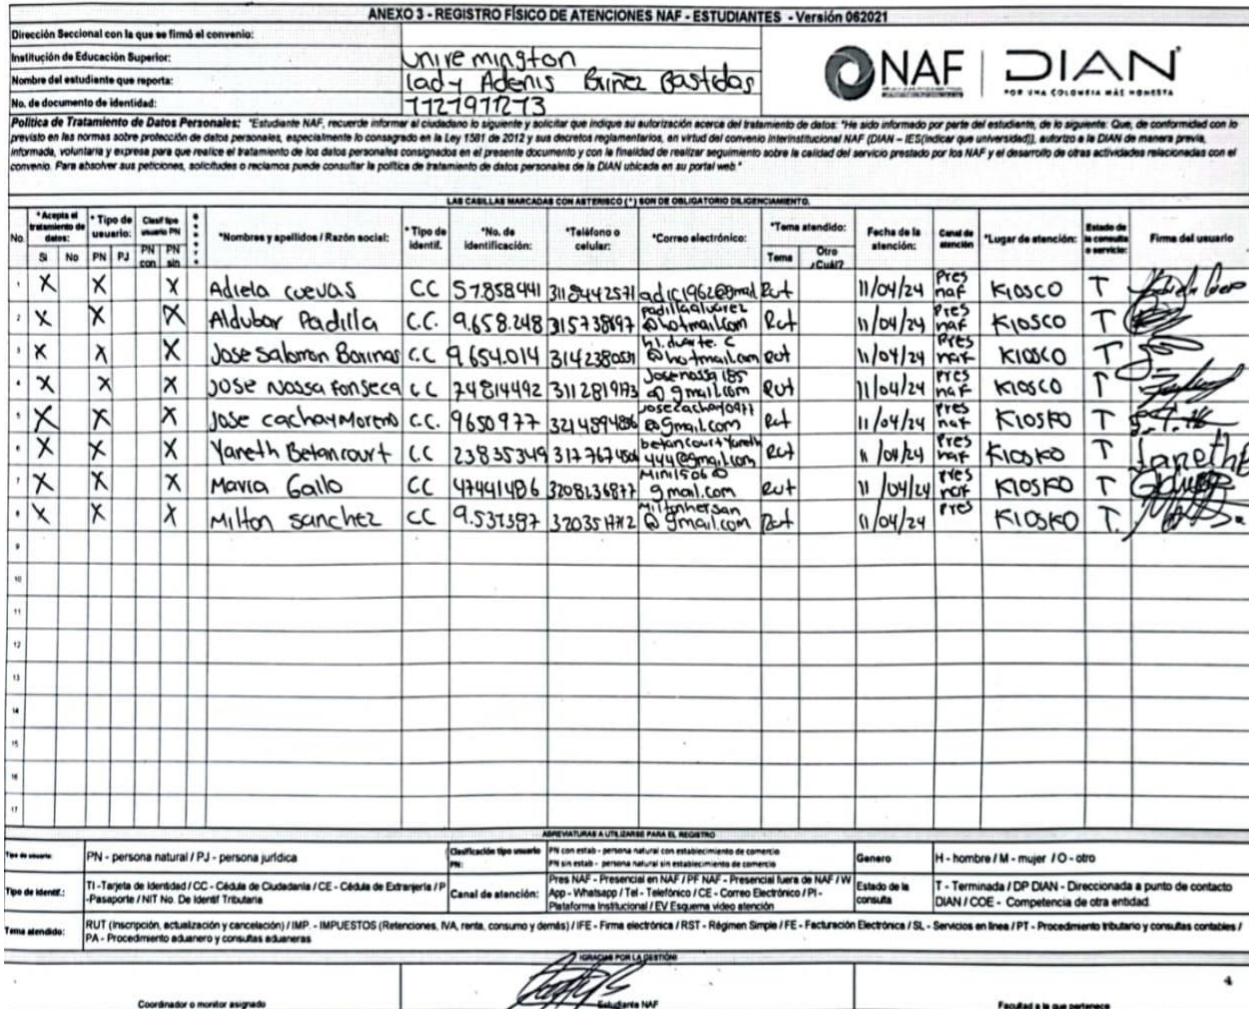 ANEXO 3 - REGISTRO FÍSICO DE ATENCIONES NAF - ESTUDIANTES - Versión 062021
Dirección Seccional con la que se firmó el convenio:
Institución de Educación Superior: Uniremington
Nombre del estudiante que reporta: lady Adenis Briñez Bastidas
No. de documento de identidad:
NAF DIAN
POR UNA COLOMBIA MÁS HONESTA
Política de Tratamiento de Datos Personales: "Estudiante NAF, recuerde informar al ciudadano lo siguiente y solicitar que indique su autorización acerca del tratamiento de datos: "He sido informado por parte del estudiante, de lo siguiente: Que, de conformidad con lo
previsto en las normas sobre protección de datos personales, especialmente lo consagrado en la Ley 1581 de 2012 y sus decretos reglamentarios, en virtud del convenio interinstitucional NAF (DIAN – IES(indicar que universidad)), autorizo a la DIAN de manera previa,
informada, voluntaria y expresa para que realice el tratamiento de los datos personales consignados en el presente documento y con la finalidad de realizar seguimiento sobre la calidad del servicio prestado por los NAF y el desarrollo de otras actividades relacionadas con el
convenio. Para absolver sus peticiones, solicitudes o reclamos puede consultar la política de tratamiento de datos personales de la DIAN ubicada en su portal web."
LAS CASILLAS MARCADAS CON ASTERISCO (*) SON DE OBLIGATORIO DILIGENCIAMIENTO.
No. *Acepta el tratamiento de datos: * Tipo de usuario: Clasif tipo usuario PN *Nombres y apellidos / Razón social: * Tipo de identif. *No. de identificación: *Teléfono o celular: *Correo electrónico: *Tema atendido: Fecha de la atención: Canal de atención *Lugar de atención: Estado de la consulta o servicio: Firma del usuario
Si No PN PJ PN con PN sin Tema Otro ¿Cuál?
1 X X X Adiela cuevas CC 57.858441 3118442571 adic1962@gmail Rut 11/04/24 Pres naf KIOSCO T
2 X X X Aldubar Padilla C.C. 9.658.248 315738697 padillaalvarez @hotmail.com Rut 11/04/24 Pres naf KIOSCO T
3 X X X Jose Salomon Barinas C.C 9.654.014 h1.duarte.c @hotmail.com Rut 11/04/24 Pres naf KIOSCO T
4 X X X Jose Nossa Fonseca CC 74814492 3112819173 Josenossa185 @gmail.com Rut 11/04/24 Pres naf KIOSCO T
5 X X X Jose cachay Moreno C.C. 9650977 josecachay0977 @gmail.com Rut 11/04/24 Pres naf KIOSKO T
6 X X X Yaneth Betancourt CC 23835349 betancourtYaneth 444@gmail.com Rut 11/04/24 Pres naf KIOSKO T Janeth B
7 X X X Maria Gallo CC 47441486 3208236877 gmail.com Rut 11/04/24 Pres naf KIOSKO T
8 X X X Milton Sanchez CC 9.531387 Miltonhersan @gmail.com Rut 11/04/24 Pres KIOSKO T.
9
10
11
12
13
14
15
16
17
ABREVIATURAS A UTILIZARSE PARA EL REGISTRO
Tipo de usuario: PN - persona natural / PJ - persona jurídica Clasificación tipo usuario PN: PN con estab - persona natural con establecimiento de comercio
PN sin estab - persona natural sin establecimiento de comercio Genero H - hombre / M - mujer / O - otro
Tipo de identif.: TI -Tarjeta de Identidad / CC - Cédula de Ciudadanía / CE - Cédula de Extranjería / P -Pasaporte / NIT No. De Identif Tributaria
Canal de atención: Pres NAF - Presencial en NAF / PF NAF - Presencial fuera de NAF / W App - Whatsapp / Tel - Telefónico / CE - Correo Electrónico / PI - Plataforma Institucional / EV Esquema video atención
Estado de la consulta T - Terminada / DP DIAN - Direccionada a punto de contacto DIAN / COE - Competencia de otra entidad.
Tema atendido: RUT (Inscripción, actualización y cancelación) / IMP. - IMPUESTOS (Retenciones, IVA, renta, consumo y demás) / IFE - Firma electrónica / RST - Régimen Simple / FE - Facturación Electrónica / SL - Servicios en línea / PT - Procedimiento tributario y consultas contables /
PA - Procedimiento aduanero y consultas aduaneras
¡GRACIAS POR LA GESTIÓN!
4
Coordinador o monitor asignado Estudiante NAF Facultad a la que pertenece